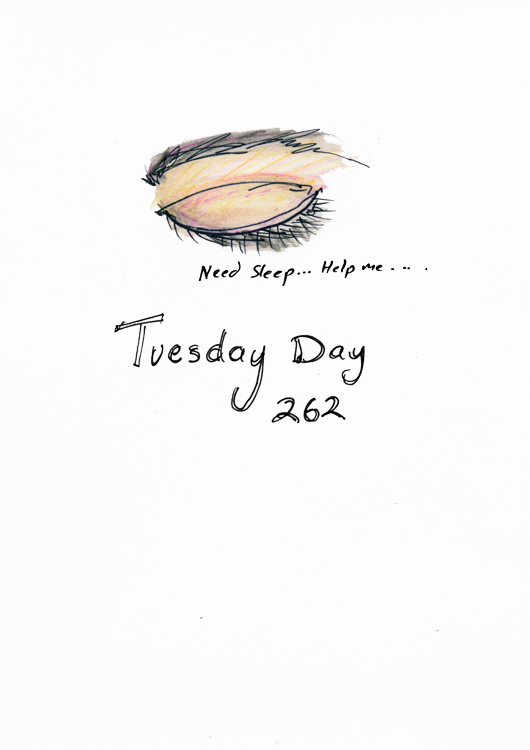 Need Sleep... Help me....
Tuesday Day
262